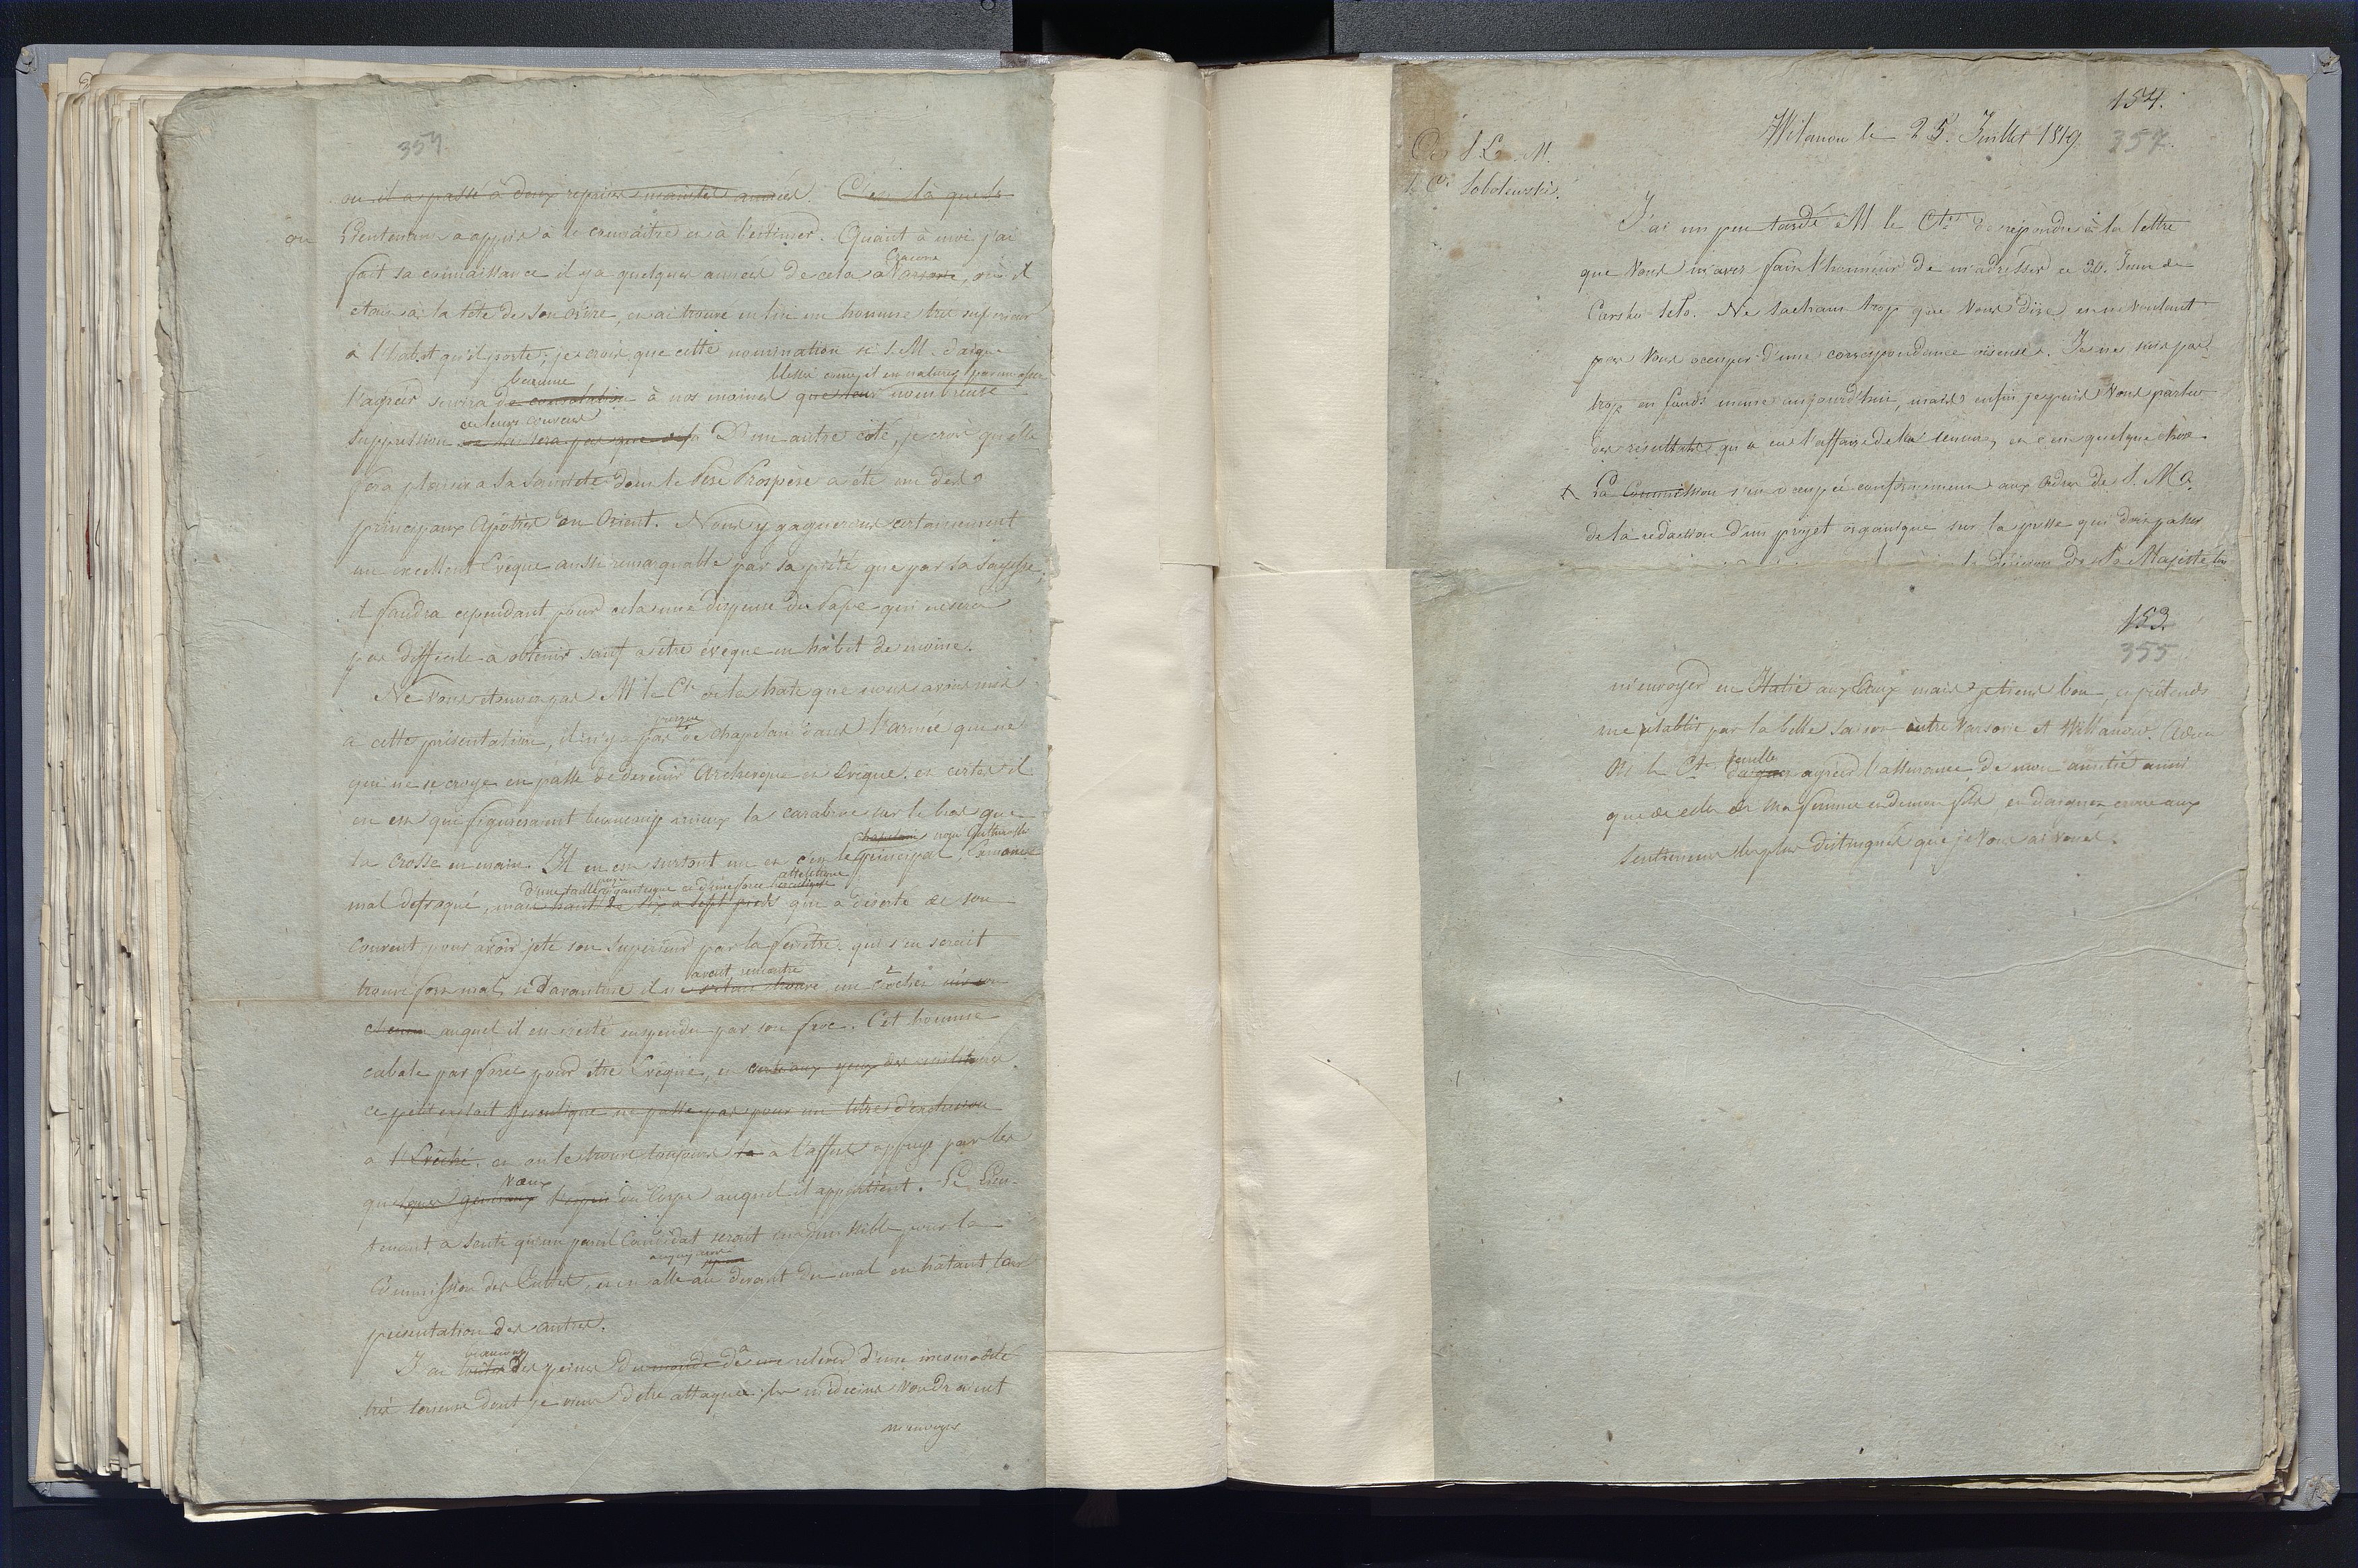 354.
ou il a passé à deux reprises maintes années. C'est là que le
on Lieutenant a appris à le connaître et à l'estimer. Quant à moi j'ai
Cracovie
fait sa connaissance il y a quelques années de cela a Varsovie, où il
etait à la tête de son Ordre, et ai trouvé en lui un homme très superieur
à l'habit qu'il porte; je crois que cette nomination si S. M. daigne
baume blessés comme
l'agréer servira de consolation à nos moines que leur nombreuse
de leurs couvens
suppression D'un autre côté, je crois qu'elle
fera plaisir a Sa Sainteté dont le Père Prospère a été un des
principaux Apôtres en Orient. Nous y gagnerons certainement
un excellent Evêque aussi remarquable par sa piété que par sa sagesse;
il faudra cependant pour cela une dispense du Pape qui ne sera
pas difficile à obtenir sauf a être évêque en habit de moine.
Ne Vous etonnez pas M le Cte de la hate que nous avons mis
presque
a cette présentation, il n'y a pas de chapelain dans l'armée que ne
qui ne se croye en passe de devenir Archevêque ou Evêque. et certes il
en est qui figureraient beaucoup mieux la carabine sur le bras que
la crosse en main. Il en est surtout un et c'est le principal,
d'une taille gigantesque et d'une force athletique
mal defroqué, mais haut de six a sept pieds qui a deserté de son
Couvent pour avoir jeté son Superieur par la fenêtre. qui s'en serait
avait rencontré
trouvé fort mal, si d'avanture il ne un crochet
auquel il est resté suspendu par son froc. Cet homme
cabale par force pour être Evêque, et certes aux yeux des militaires
ce petit exploit Herculique ne passe pas pour un titre d'exclusion
a l'Evêché. et on le trouve toujours la a l'affut appuyé par les
Vœux
quelques generaux du Corps auquel il appartient. Le Lieu-
tenant a senti qu'un pareil Candidat serait inadmissible pour la
Commission des Cultes, et est allé au devant du mal en hâtant la
présentation des autres.
beaucoup
J'ai toutes des peines du monde de me relever d'une incomodité
très serieuse dont je viens d'etre attaqué; les médecins voudraient
m'envoyer
154.
Willanow le 25. Juillet 1819 357.
S. E. M.
le Cte Sobolewski.
J'ai un peu tardé M le Cte de repondre à la lettre
que Vous m'avez fait l'honneur de m'adresser ce 30. Juin de
Carsko-Selo. Ne sachant trop que Vous dire, et ne voulant
pas Vous occuper d'une correspondance oiseuse. Je ne suis pas
trop en fonds même aujourd'hui, mais enfin je puis Vous parler
des resultats qu'a eu l'affaire de la censure, et c'est quelque chose.
La Commission s'est occupée conformement aux Ordres de S. M.
de la redaction d'un projet organique sur la presse qui doit passer
la décision de Sa Majesté
153.
355
m'envoyer en Italie aux Eaux mais je tiens bon, et prétends
me retablir par la belle saison entre Varsovie et Willanow. Adieu
veuillez
M. le Cte daignez agréer l'assurance de mon amitié ainsi
que de celle de ma femme et de mon fils, et daignez croire aux
Sentimens les plus distingués que je Vous ai voués.